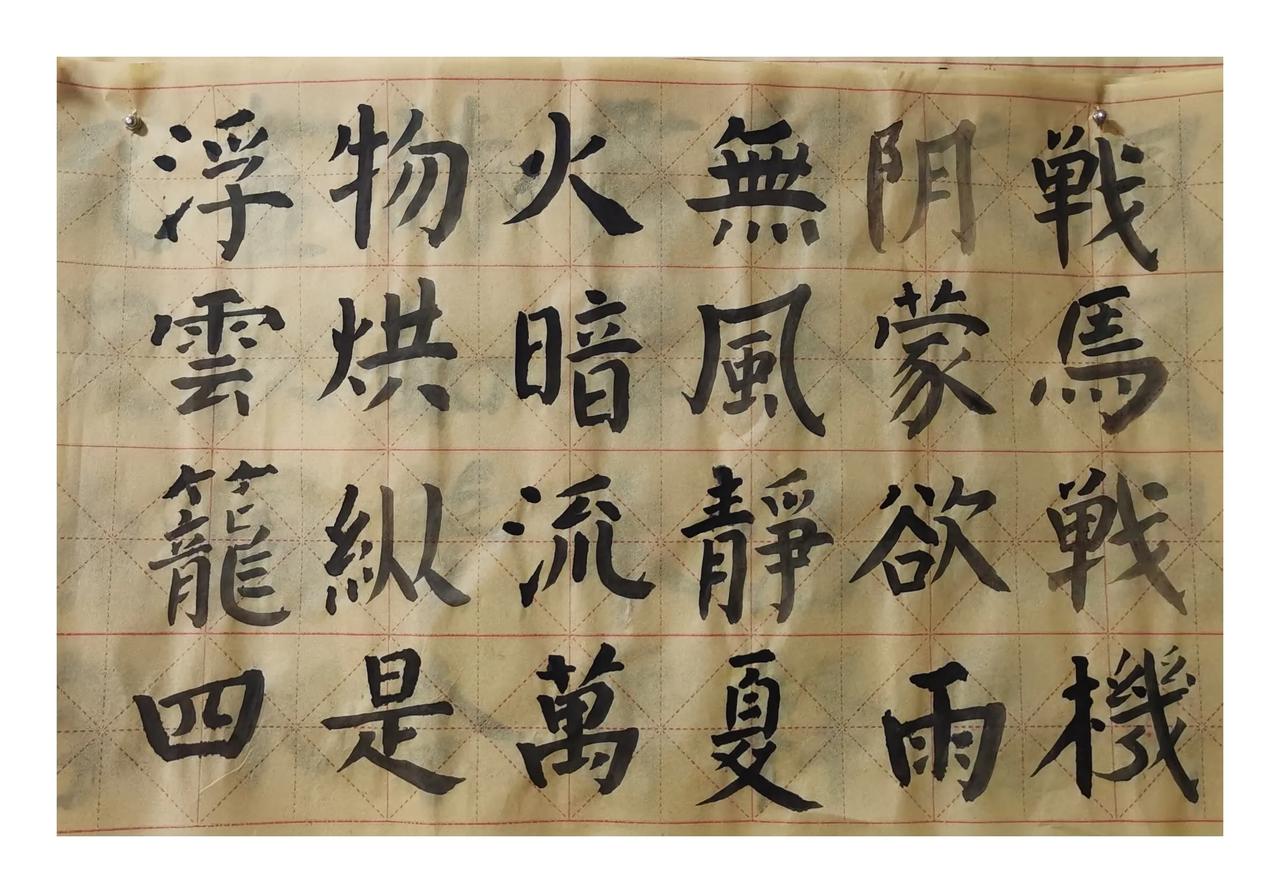 戦馬戦機
阴蒙欲雨
無風靜夏
火暗流萬
物烘纵是
浮雲籠四